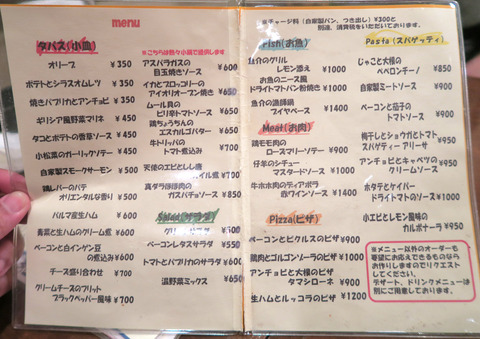 menu
タパス(小皿)
※こちらは各々小皿で提供します
オリーブ ¥350
ポテトとシラスオムレツ ¥350
焼きパプリカとアンチョビ ¥350
ギリシア風野菜マリネ ¥450
タコとポテトの香草ソース ¥450
小松菜のガーリックソテー ¥450
自家製スモークサーモン ¥550
鶏レバーのパテ
オリエンタルな香り ¥550
パルマ産生ハム ¥600
青菜と生ハムのクリーム煮 ¥600
ベーコンと白インゲン豆
の煮込み ¥600
チーズ盛り合わせ ¥700
クリームチーズのフリット
ブラックペッパー風味 ¥700
アスパラガスの
目玉焼きソース ¥600
イカとブロッコリーの
アイオリオーブン焼き ¥650
ムール貝の
ピリ辛トマトソース ¥650
鶏ぢょうちんの
エスカルゴバター ¥650
牛トリッパの
トマト煮込み ¥700
天使のエビとしし唐
オイル煮 ¥700
真ダラほほ肉の
ガスパチョソース ¥850
Salad(サラダ)
グリーンサラダ ¥500
ベーコンレタスサラダ ¥550
トマトとパプリカのサラダ ¥550
温野菜ミックス ¥650
※チャージ料(自家製パン、つき出し)¥300と
別途、消費税をいただいております。
Fish(お魚)
のグリル
レモン添え ¥1000
お魚のニース風
ドライトマトパン粉焼き ¥1000
魚介の漁師鍋
ブイヤベース ¥1400
Meat(お肉)
鶏モモ肉の
ローズマリーソテー ¥900
仔羊のシチュー
マスタードソース ¥1000
牛ホホ肉のディアボラ
赤ワインソース ¥1400
Pizza(ピザ)
ベーコンとピクルスのピザ ¥900
鶏肉とゴルゴンゾーラのピザ ¥1000
アンチョビと大根のピザ
タマシローネ ¥900
生ハムとルッコラのピザ ¥1200
Pasta(スパゲッティ)
じゃこと大根の
ペペロンチーノ ¥850
自家製ミートソース ¥900
ベーコンと茄子の
トマトソース ¥900
梅干しとショウガとトマト
スパゲティー アリーサ ¥950
アンチョビとキャベツの
クリームソース ¥950
ホタテとケイパー
ドライトマトのソース ¥1000
小エビとレモン風味の
カルボナーラ ¥950
※メニュー以外のオーダーも
要望にお応えできるものなら
お作りしますのでリクエスト
してください。
デザート、ドリンクメニューは
別にご用意しております。